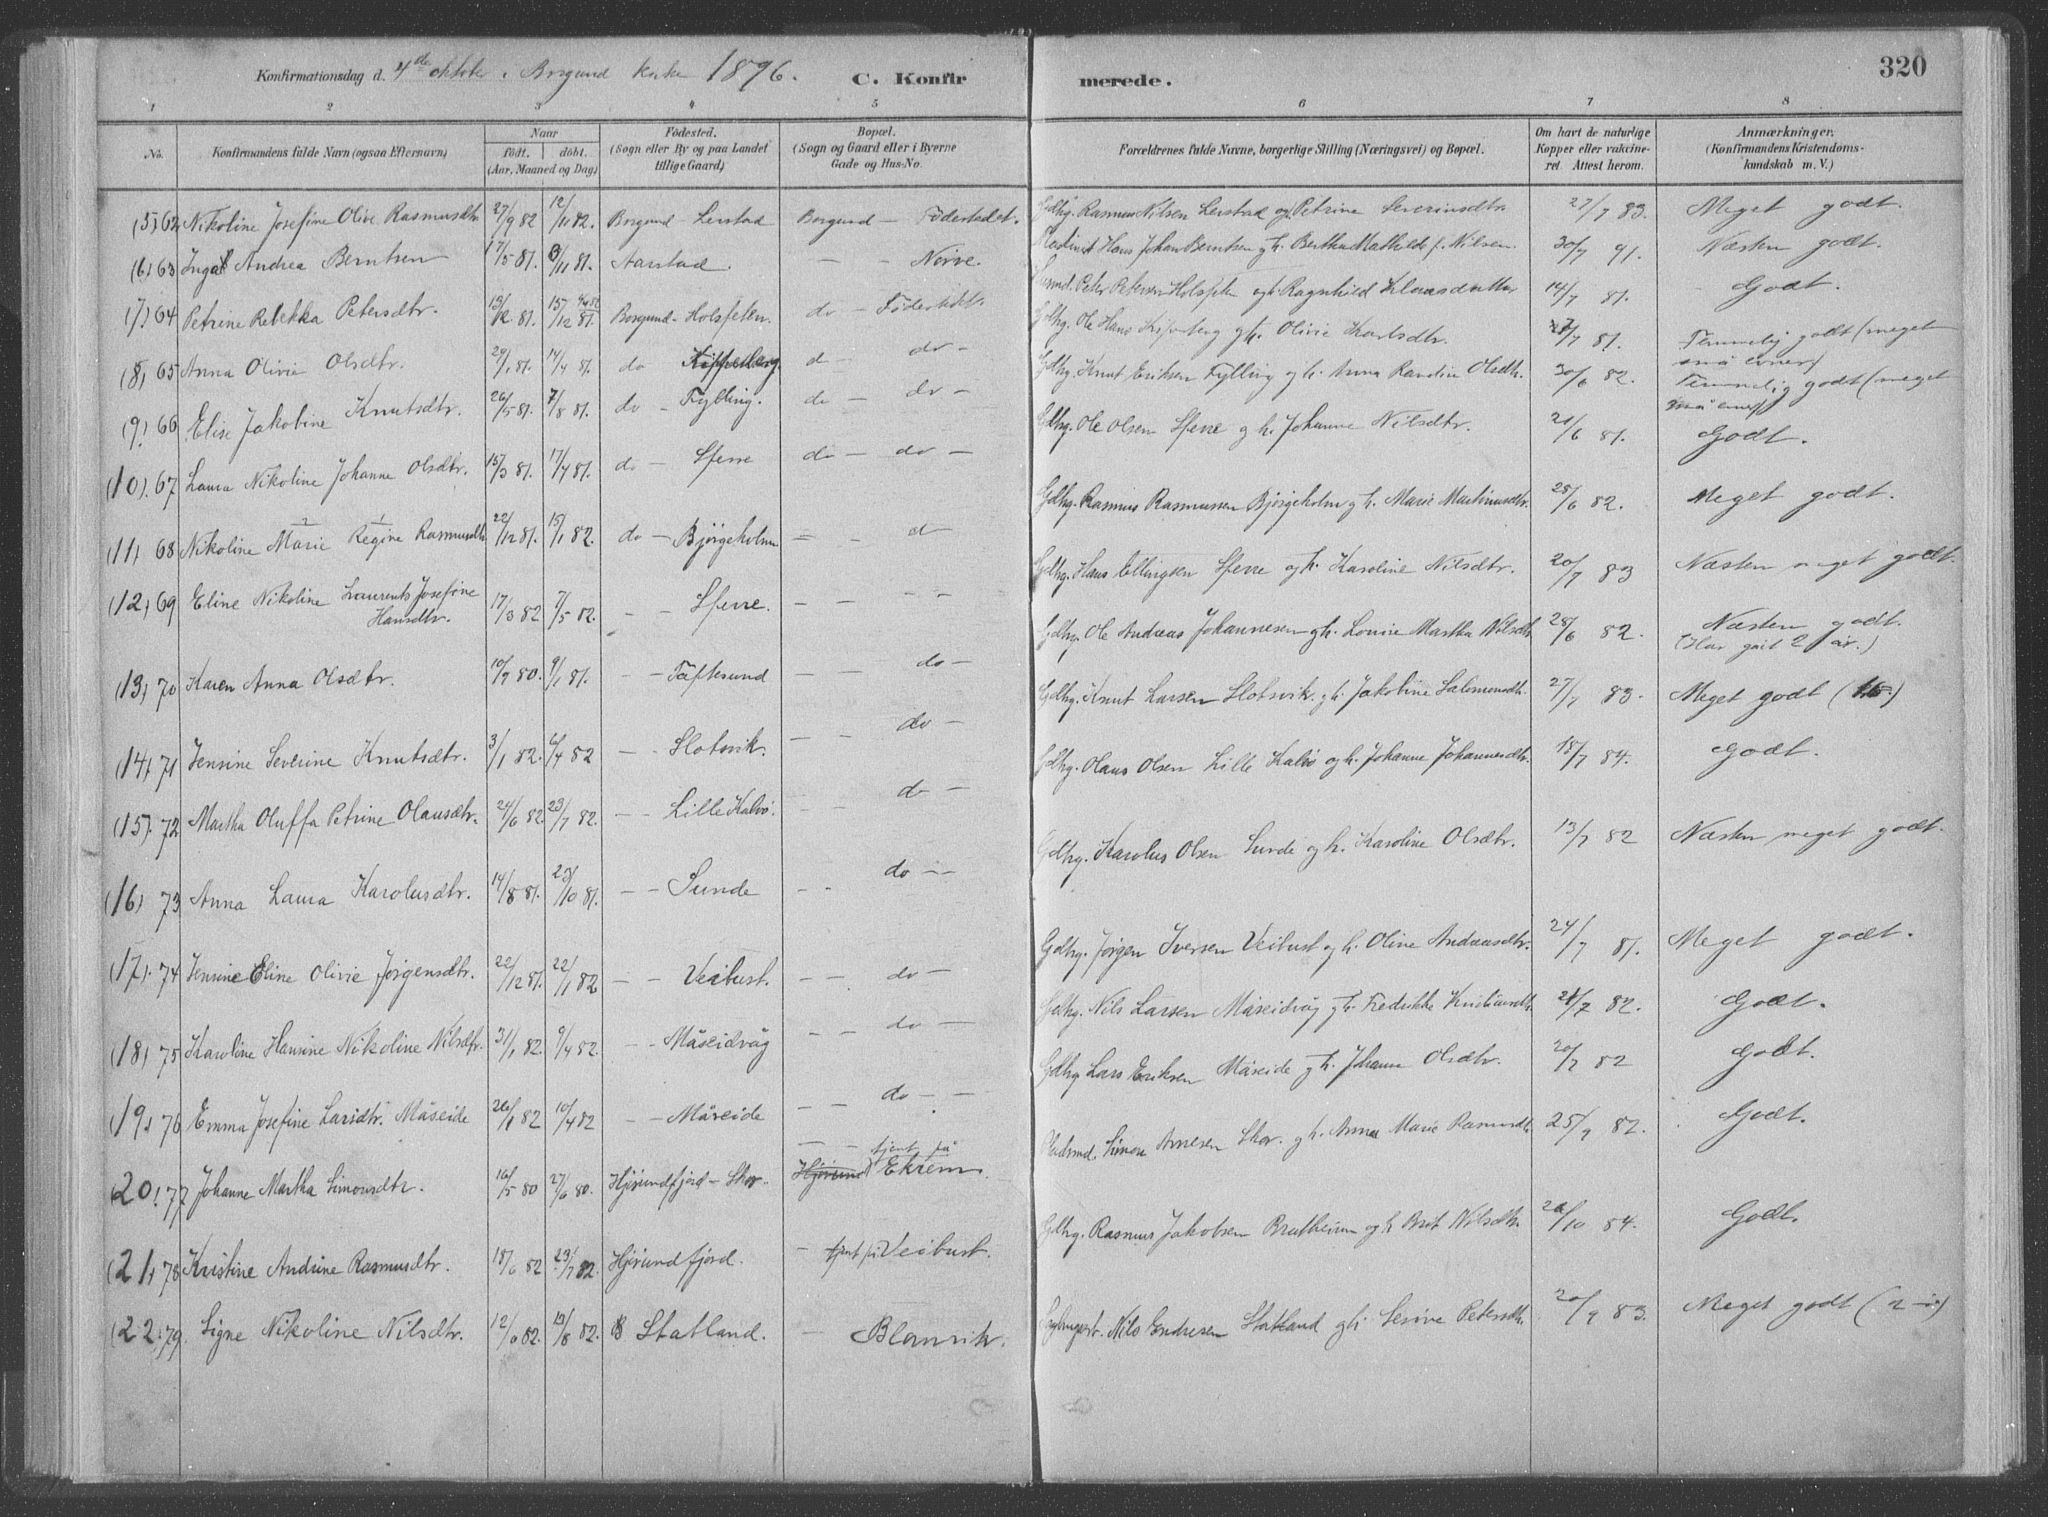 Konfirmationsdag d. 4de oktober i Borgund kirke 1896.
C. Konfirmerede.
320
1 2 3 4 5 6 7 8
No.
Konfirmandens fulde Navn (ogsaa Efternavn)
Naar
født. døbt.
(Aar, Maaned og Dag)
Fødested.
(Sogn eller By og paa Landet
tillige Gaard)
Bopæl.
(Sogn og Gaard eller i Byerne
Gade og Hus-No.
Forældrenes fulde Navne, borgerlige Stilling (Næringsvei) og Bopæl.
Om havt de naturlige
Kopper eller vakcine-
ret Attest herom.
Anmærkninger.
(Konfirmandens Kristendoms-
kundskab m. V.)
(5) 62 Nikoline Josefine Olive Rasmusdtr. 27/9 82 12/11 82. Borgund - Lerstad Borgund - Fødestedet. Gdbrg. Rasmus Nilsen Lerstad og Petrine Severinsdtr. 27/7 83. Meget godt.
(6) 63 Inga Andrea Berntsen 17/5 81. 13/11 81. Aarstad. - - Nørve. Hans Johan Berntsen gh. Bertha Mathilde f. Nilsen. 30/7 91. Næsten godt.
(7) 64 Petrine Rebekka Petersdtr. 13/12 81. 15/12 81. Borgund - Holsfeten. do - Fødestedet. Peter Petersen Holsfeten og h. Ragnhild Klausdatter 14/7 81. Godt.
(8) 65 Anna Olivie Olsdtr. 29/1 81. 14/4 81. do Kipperberg. d - do - Gdbrg. Ole Hans Kipperberg gh. Olivie Karlsdtr. 27/7 81. Temmelig godt (meget
små evner)
(9) 66 Elise Jakobine Knutsdtr. 26/5 81. 7/8 81. do - Fylling. do - do - Gdbrg. Knut Eriksen Fylling og h. Anna Karoline Olsdtr. 30/6 82. Temmelig godt (meget
små evner)
(10) 67 Laura Nikoline Johanne Olsdtr. 15/3 81. 17/4 81. do - Sperre do - do - Gdbrg. Ole Olsen Sperre og h. Johanne Nilsdtr. 21/6 81. Godt.
(11) 68 Nikoline Marie Regine Rasmusdtr. 22/12 81. 15/1 82. do - Bjørgeholm - - d - Gdbrg. Rasmus Rasmussen Bjørgeholm og h. Marie Martinusdtr. 28/6 82. Meget godt.
(12) 69 Eline Nikoline Laurents Josefine
Hansdtr. 17/3 82 7/5 82. - - Sperre. - - - - Gdbrg. Hans Ellingsen Sperre og h. Karoline Nilsdtr. 20/7 83 Næsten meget godt.
(13) 70 Karen Anna Olsdtr. 10/9 80. 9/1 81. - - Taftesund - - do - Gdbrg. Ole Andreas Johannesen gh. Lovise Martha Nilsdtr. 28/6 82. Næsten godt.
(Har gået 2 år.)
(14) 71 Jensine Severine Knutsdtr. 3/1 82. 6/4 82 - - Slotsvik. - - do - Gdbrg. Knut Larsen Slotsvik. gh. Jakobine Salomonsdtr. 27/7 83. Meget godt (1,5)
(15) 72 Martha Oluffa Petrine Olausdtr. 24/6 82. 23/7 82. - - Lille Kalvø. - - do - Gdbrg. Olaus Olsen Lille Kalvø og h. Johanne Johannesdtr. 18/7 84. Godt.
(16) 73 Anna Laura Karolusdtr. 14/8 81. 23/10 81. - - Sunde - - do - - Gdbrg. Karolus Olsen Sunde og h. Karoline Olsdtr. 13/7 82 Næsten meget godt.
(17) 74 Jensine Eline Olivie Jørgensdtr. 22/12 81. 22/1 82 - - Veibust. - - do - Gdbrg. Jørgen Iversen Veibust og h. Oline Andreasdtr. 24/7 81. Meget godt.
(18) 75 Karoline Hansine Nikoline Nilsdtr. 31/1 82. 9/4 82. - - Måseidvåg - - do - Gdbrg. Nils Larsen Måseidvåg gh. Fredrikke Kristiansdtr. 21/7 82. Godt.
(19) 76 Emma Josefine Larsdtr. Måseide 26/1 82 10/4 82 - - Måseide - - do - - Gdbrg Lars Eriksen Måseide gh. Johanne Olsdtr. 20/7 82 Godt.
(20) 77 Johanne Martha Simonsdtr. 16/5 80 27/6 80. Hjørundfjord - Skor. - - tjent på
Hjørund) Ekrem. Pladsmd. Simon Arnesen Skor. gh. Anna Marie Rasmusdtr. 25/9 82. Godt.
(21) 78 Kristine Andrine Rasmusdtr. 18/6 82 23/7 82. Hjørundfjord. - tjent på Veibust. Gdbrg. Rasmus Jakobsen Brutheim og h Brit Nilsdtr. 20/10 84. Godt.
(22) 79 Signe Nikoline Nilsdtr. 12/6 82. 13/8 82. Statland. - Blomvik. Nils Endresen Statland gh. Serine Petersdtr. 20/9 83. Meget godt (2-ia)